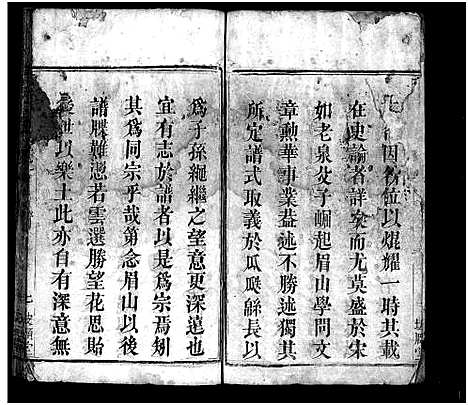 因名位以焜耀一時其載
在史論者詳矣而尤莫盛於宋
如老泉父子崛起眉山學問文
章勳華事業益述不勝述獨其
所定譜式取義於瓜瓞緜長以
為子孫繩繼之望意更深遠也
宜有志於譜者以是為宗焉矧
其為同宗乎哉第念眉山以後
譜牒難悉若雲選勝望花思貽
世以樂土此亦自有深意無